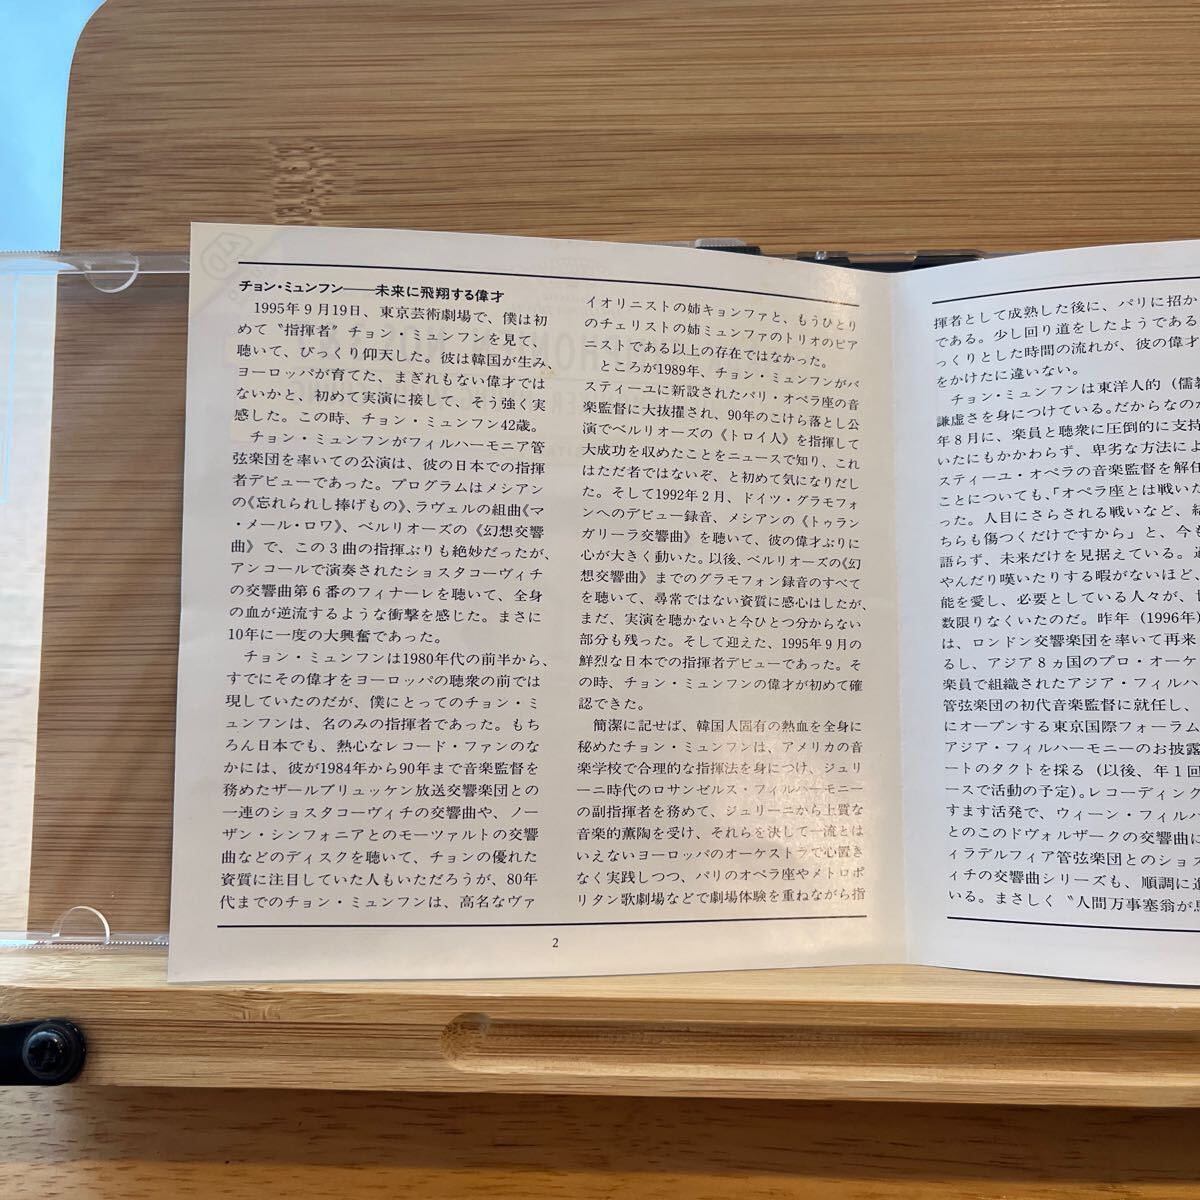 チョン・ミュンフン──未来に飛翔する偉才
1995年9月19日、東京芸術劇場で、僕は初
めて〝指揮者〟チョン・ミュンフンを見て、
聴いて、びっくり仰天した。彼は韓国が生み、
ヨーロッパが育てた、まぎれもない偉才では
ないかと、初めて実演に接して、そう強く実
感した。この時、チョン・ミュンフン42歳。
チョン・ミュンフンがフィルハーモニア管
弦楽団を率いての公演は、彼の日本での指揮
者デビューであった。プログラムはメシアン
の《忘れられし捧げもの》、ラヴェルの組曲《マ
・メール・ロワ》、ベルリオーズの《幻想交響
曲》で、この3曲の指揮ぶりも絶妙だったが、
アンコールで演奏されたショスタコーヴィチ
の交響曲第6番のフィナーレを聴いて、全身
の血が逆流するような衝撃を感じた。まさに
10年に一度の大興奮であった。
チョン・ミュンフンは1980年代の前半から、
すでにその偉才をヨーロッパの聴衆の前では
現していたのだが、僕にとってのチョン・ミ
ュンフンは、名のみの指揮者であった。もち
ろん日本でも、熱心なレコード・ファンのな
かには、彼が1984年から90年まで音楽監督を
務めたザールブリュッケン放送交響楽団との
一連のショスタコーヴィチの交響曲や、ノー
ザン・シンフォニアとのモーツァルトの交響
曲などのディスクを聴いて、チョンの優れた
資質に注目していた人もいただろうが、80年
代までのチョン・ミュンフンは、高名なヴァ
イオリニストの姉キョンファと、もうひとり
のチェリストの姉ミュンファのトリオのピア
ニストである以上の存在ではなかった。
ところが1989年、チョン・ミュンフンがバ
スティーユに新設されたパリ・オペラ座の音
楽監督に大抜擢され、90年のこけら落とし公
演でベルリオーズの《トロイ人》を指揮して
大成功を収めたことをニュースで知り、これ
はただ者ではないぞ、と初めて気になりだし
た。そして1992年2月、ドイツ・グラモフォ
ンへのデビュー録音、メシアンの《トゥラン
ガリーラ交響曲》を聴いて、彼の偉才ぶりに
心が大きく動いた。以後、ベルリオーズの《幻
想交響曲》までのグラモフォン録音のすべて
を聴いて、尋常ではない資質に感心はしたが、
まだ、実演を聴かないと今ひとつ分からない
部分も残った。そして迎えた、1995年9月の
鮮烈な日本での指揮者デビューであった。そ
の時、チョン・ミュンフンの偉才が初めて確
認できた。
簡潔に記せば、韓国人固有の熱血を全身に
秘めたチョン・ミュンフンは、アメリカの音
楽学校で合理的な指揮法を身につけ、ジュリ
ーニ時代のロサンゼルス・フィルハーモニー
の副指揮者を務めて、ジュリーニから上質な
音楽的薫陶を受け、それらを決して一流とは
いえないヨーロッパのオーケストラで心置き
なく実践しつつ、パリのオペラ座やメトロポ
リタン歌劇場などで劇場体験を重ねながら指
2
揮者として成熟した後に、パリに招か
である。少し回り道をしたようである
っくりとした時間の流れが、彼の偉才
をかけたに違いない。
チョン・ミュンフンは東洋人的（儒教
謙虚さを身につけている。だからなのか
年8月に、楽員と聴衆に圧倒的に支持
いたにもかかわらず、卑劣な方法によ
スティーユ・オペラの音楽監督を解任
ことについても、「オペラ座とは戦いた
った。人目にさらされる戦いなど、結
ちらも傷つくだけですから」と、今も
語らず、未来だけを見据えている。過
やんだり嘆いたりする暇がないほど、
能を愛し、必要としている人々が、世
数限りなくいたのだ。昨年（1996年）
は、ロンドン交響楽団を率いて再来
るし、アジア8ヵ国のプロ・オーケ
楽員で組織されたアジア・フィルハ
管弦楽団の初代音楽監督に就任し、
にオープンする東京国際フォーラム
アジア・フィルハーモニーのお披露
ートのタクトを採る（以後、年1回
ースで活動の予定）。レコーディング
すます活発で、ウィーン・フィルハ
とのこのドヴォルザークの交響曲に
ィラデルフィア管弦楽団とのショス
ィチの交響曲シリーズも、順調に進
いる。まさしく〝人間万事塞翁が馬